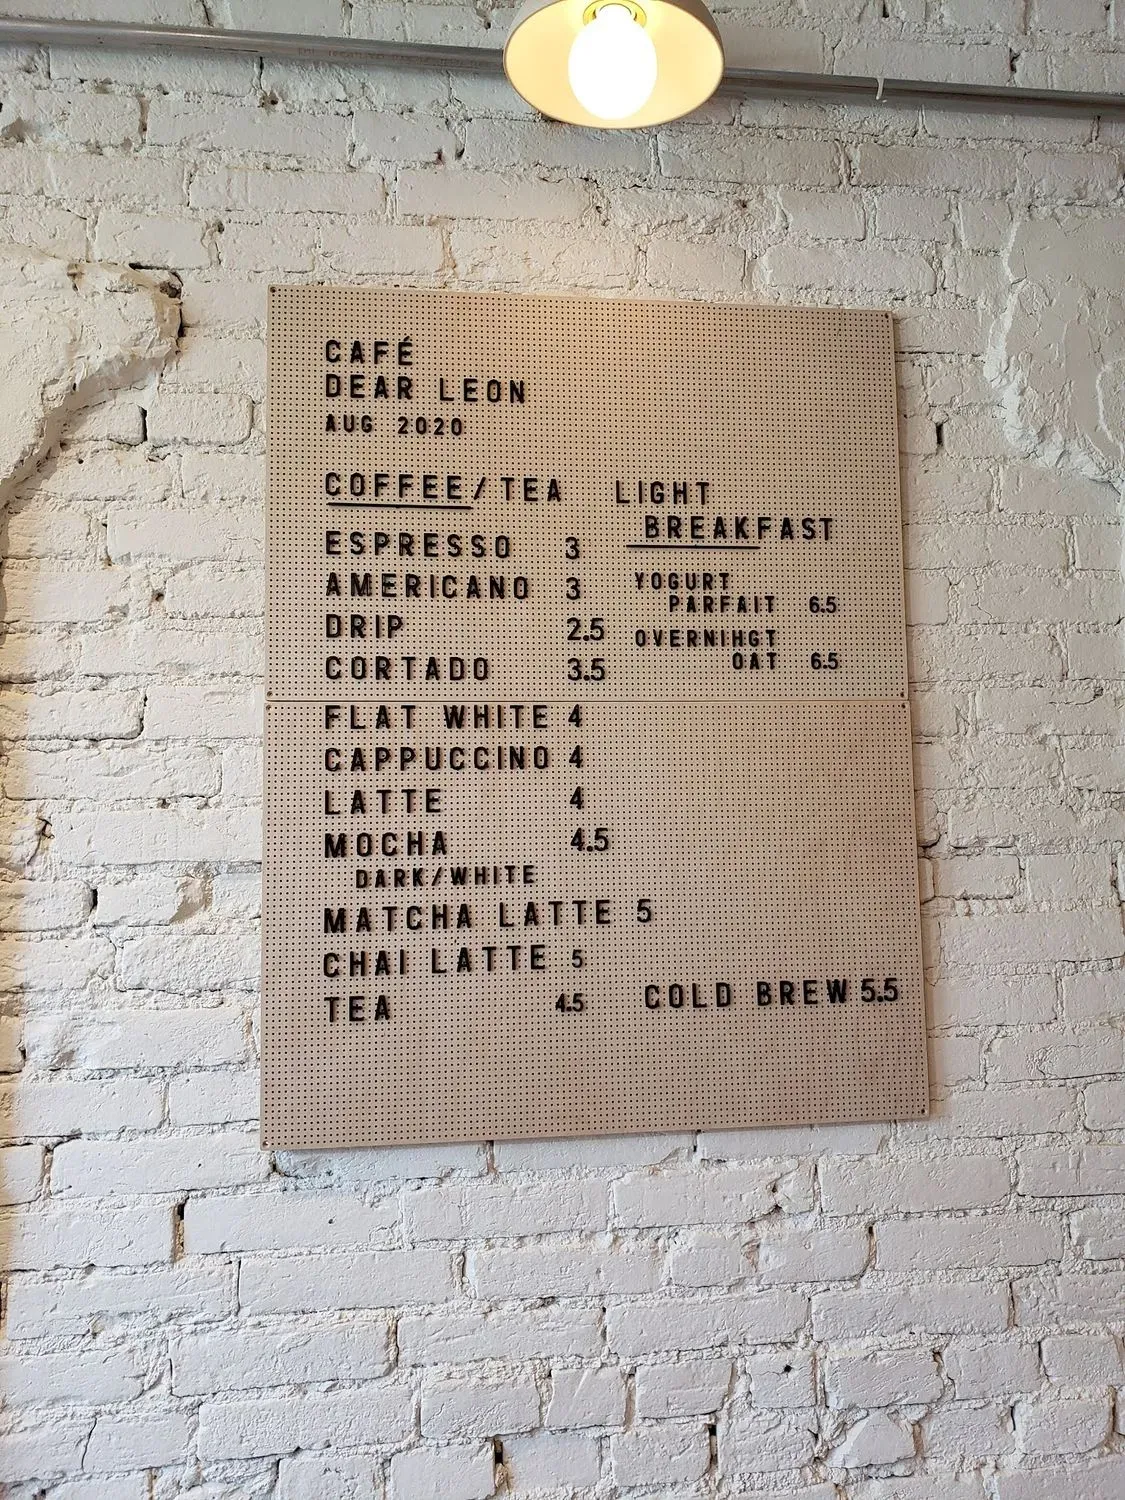 CAFÉ
DEAR LEON
AUG 2020
COFFEE/TEA
ESPRESSO 3
AMERICANO 3
DRIP 2.5
CORTADO 3.5
FLAT WHITE 4
CAPPUCCINO 4
LATTE 4
MOCHA 4.5
DARK/WHITE
MATCHA LATTE 5
CHAI LATTE 5
TEA 4.5
LIGHT
BREAKFAST
YOGURT
PARFAIT 6.5
OVERNIHGT
OAT 6.5
COLD BREW 5.5